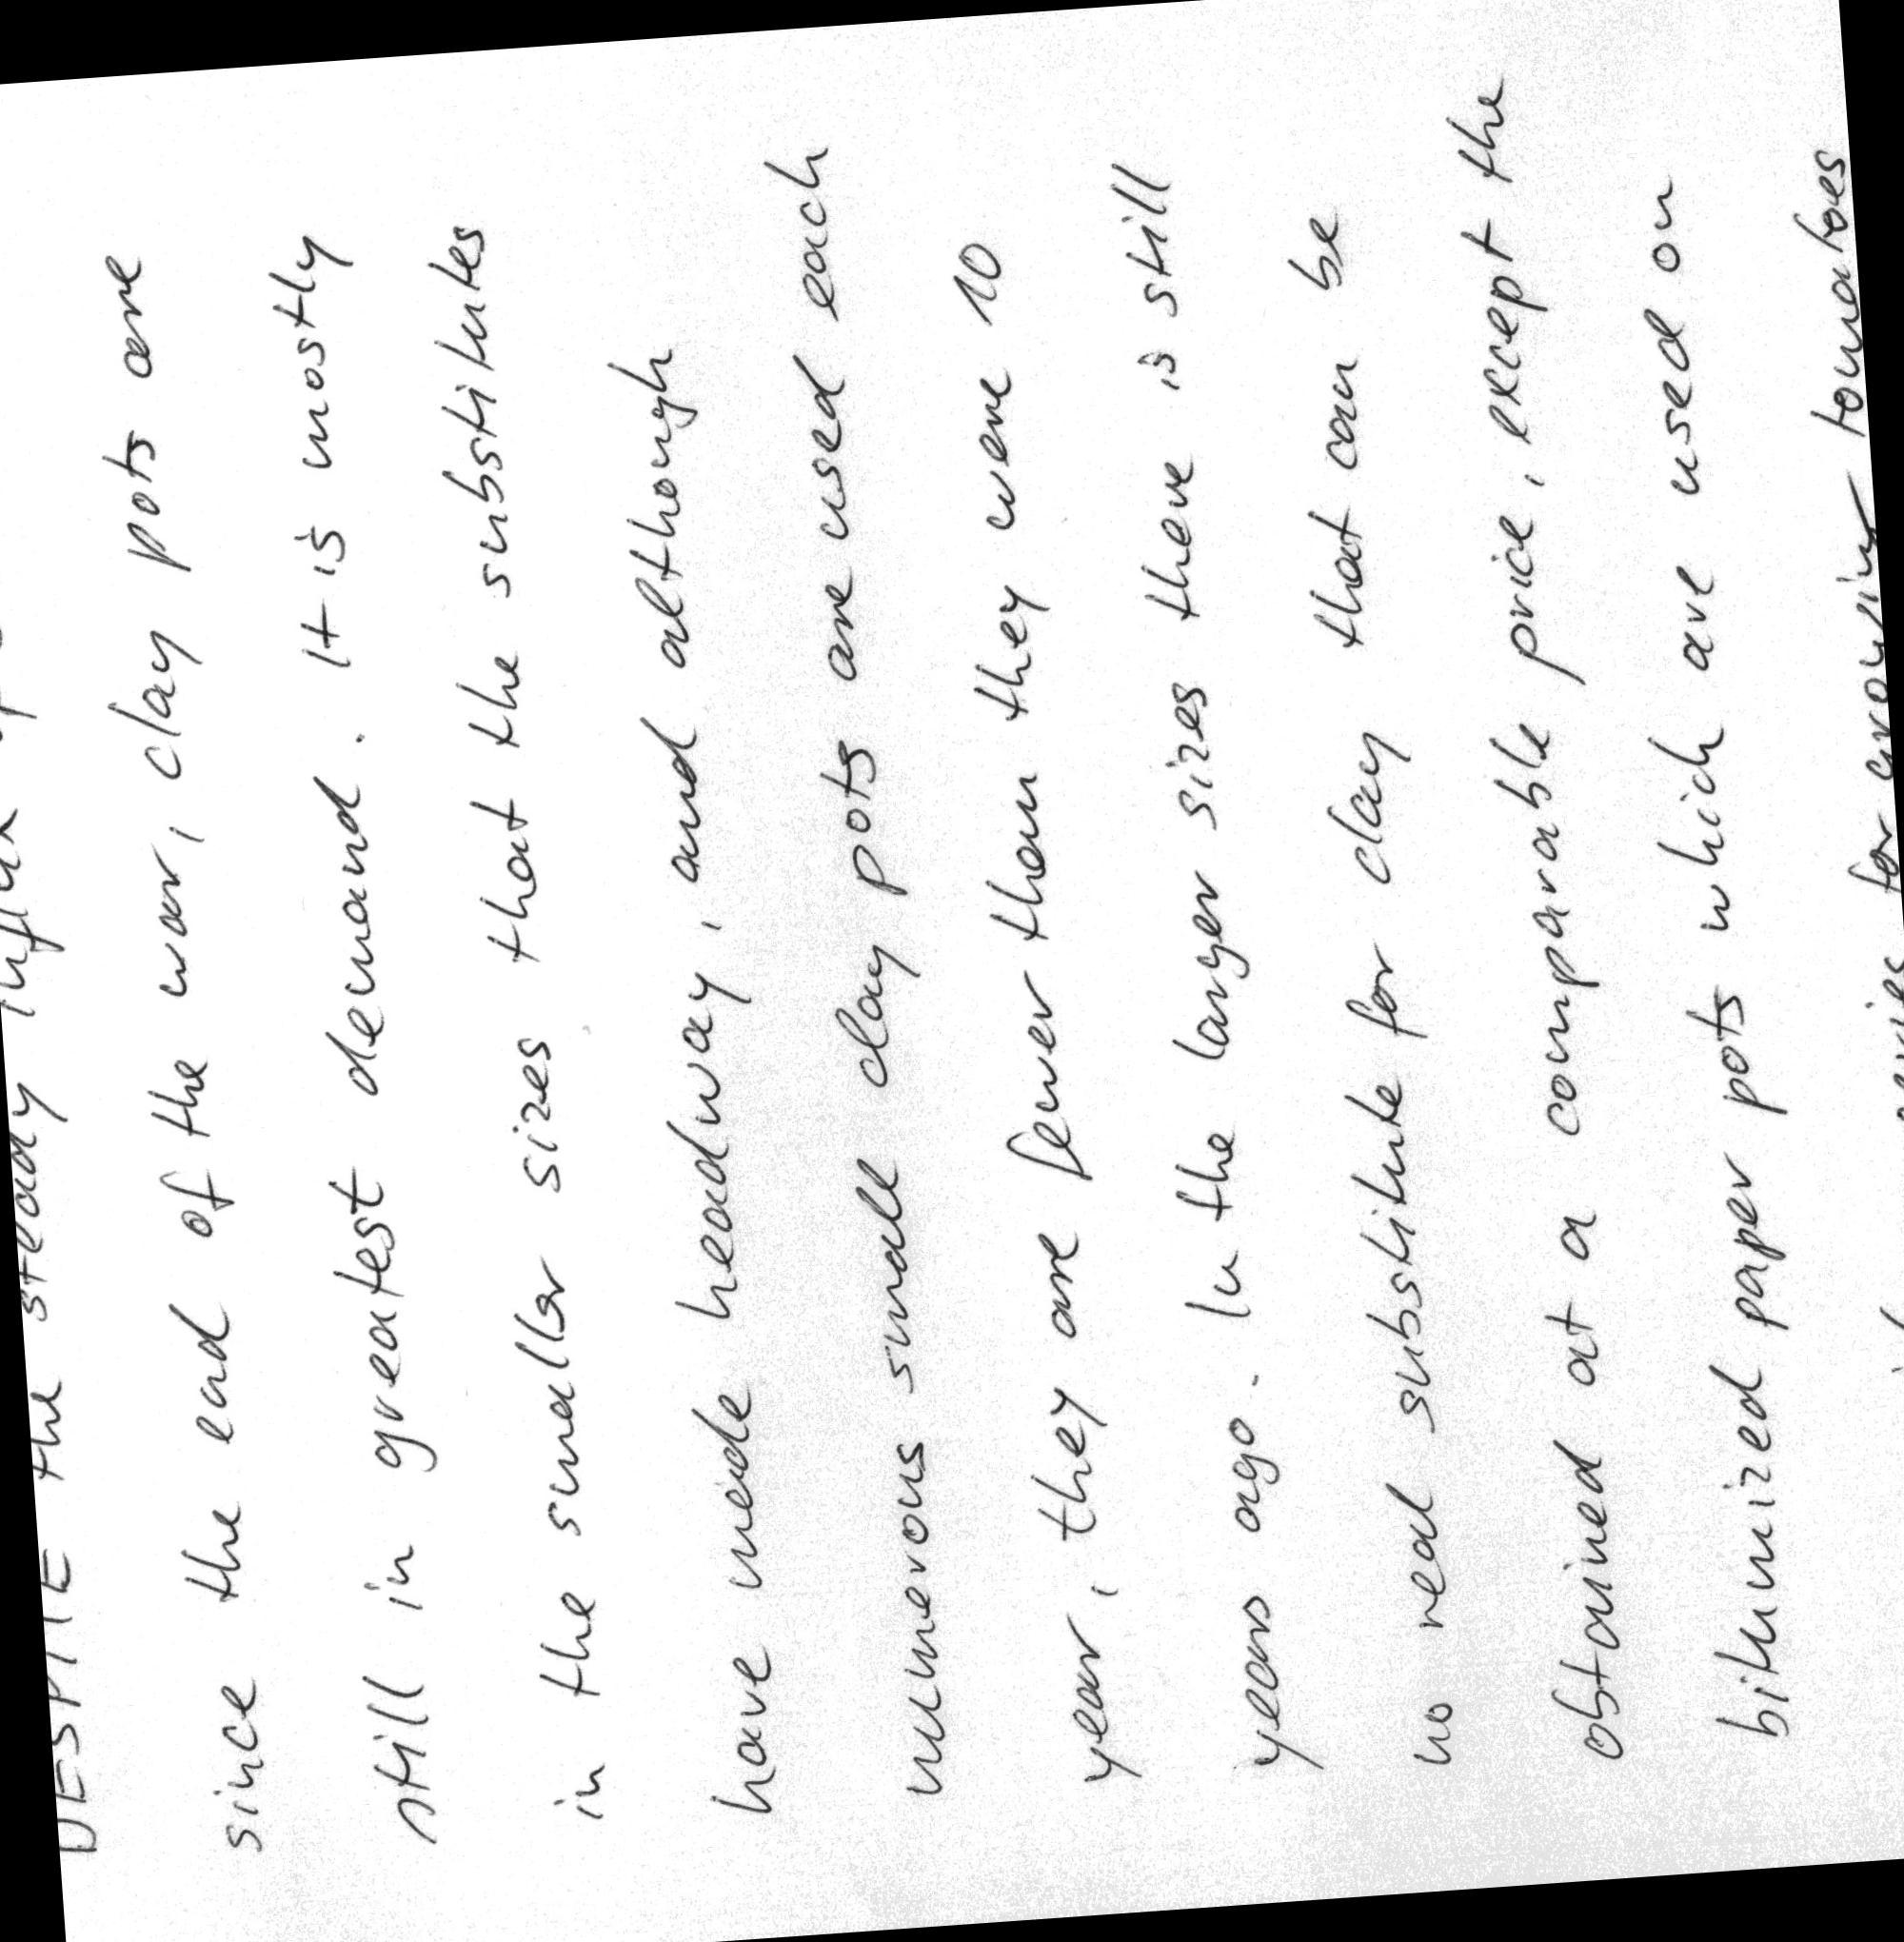 DESPITE the steady influx of
since the end of the war, clay pots are
still in greatest demand. It is mostly
in the smaller sizes that the substitutes
have made headway, and although
numerous small clay pots are used each
year, they are fewer than they were 10
years ago. In the larger sizes there is still
no real substitute for clay that can be
obtained at a comparable price, except the
bitumized paper pots which are used on
for growing tomatoes